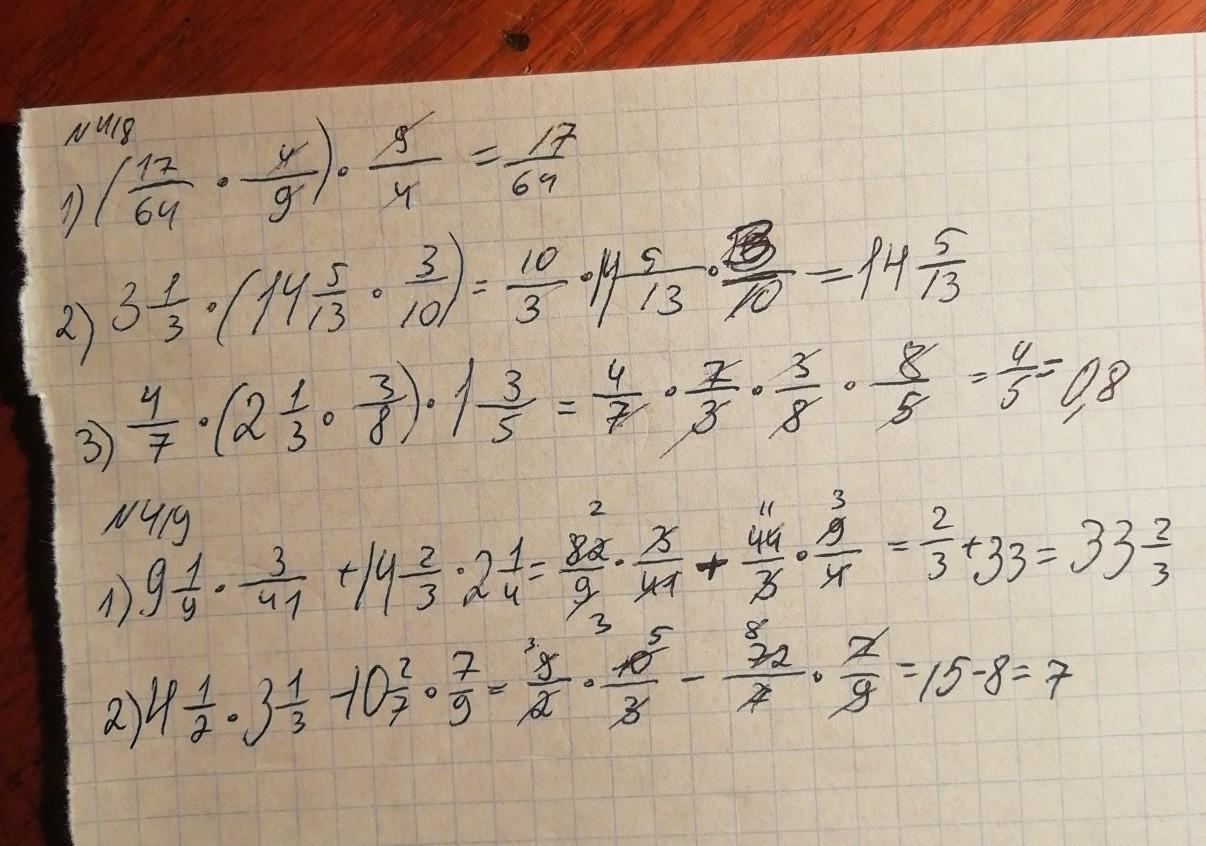 №418
1) (17/64 · 4/9) · 9/4 = 17/64
2) 3 1/3 · (14 5/13 · 3/10) = 10/3 · 14 5/13 · 3/10 = 14 5/13
3) 4/7 · (2 1/3 · 3/8) · 1 3/5 = 4/7 · 7/3 · 3/8 · 8/5 = 4/5 = 0,8
№419
1) 9 1/9 · 3/41 + 14 2/3 · 2 1/4 = 82/9 · 3/41 + 44/3 · 9/4 = 2/3 + 33 = 33 2/3
2) 4 1/2 · 3 1/3 - 10 2/7 · 7/9 = 9/2 · 10/3 - 72/7 · 7/9 = 15 - 8 = 7